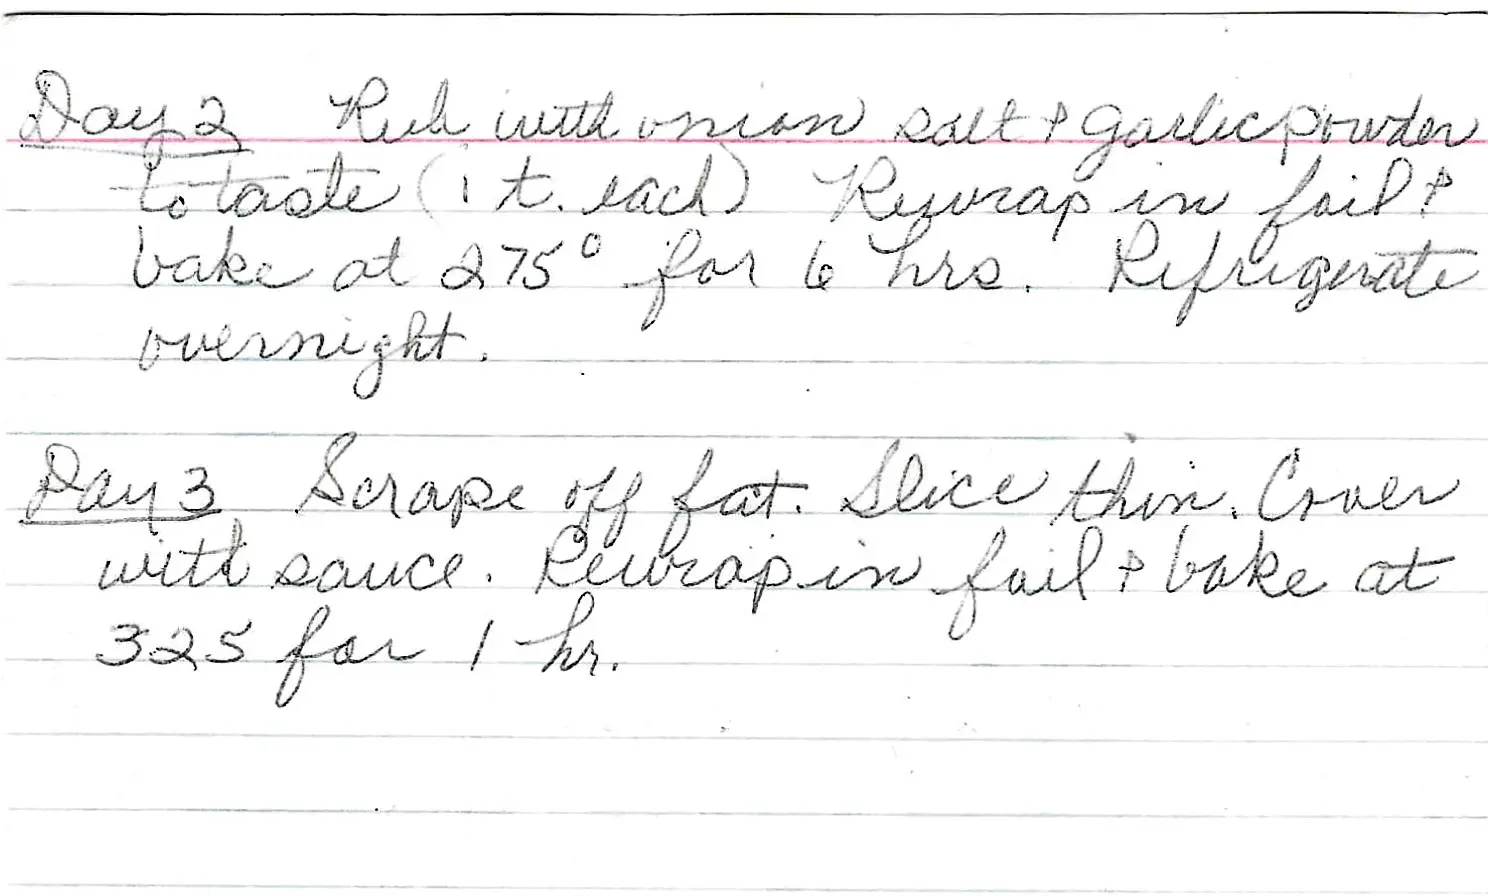 Day 2 Rub with onion salt & garlic powder
to taste (1 t. each) Rewrap in foil &
bake at 275° for 6 hrs. Refrigerate
overnight.
Day 3 Scrape off fat. Slice thin. Cover
with sauce. Rewrap in foil & bake at
325 for 1 hr.